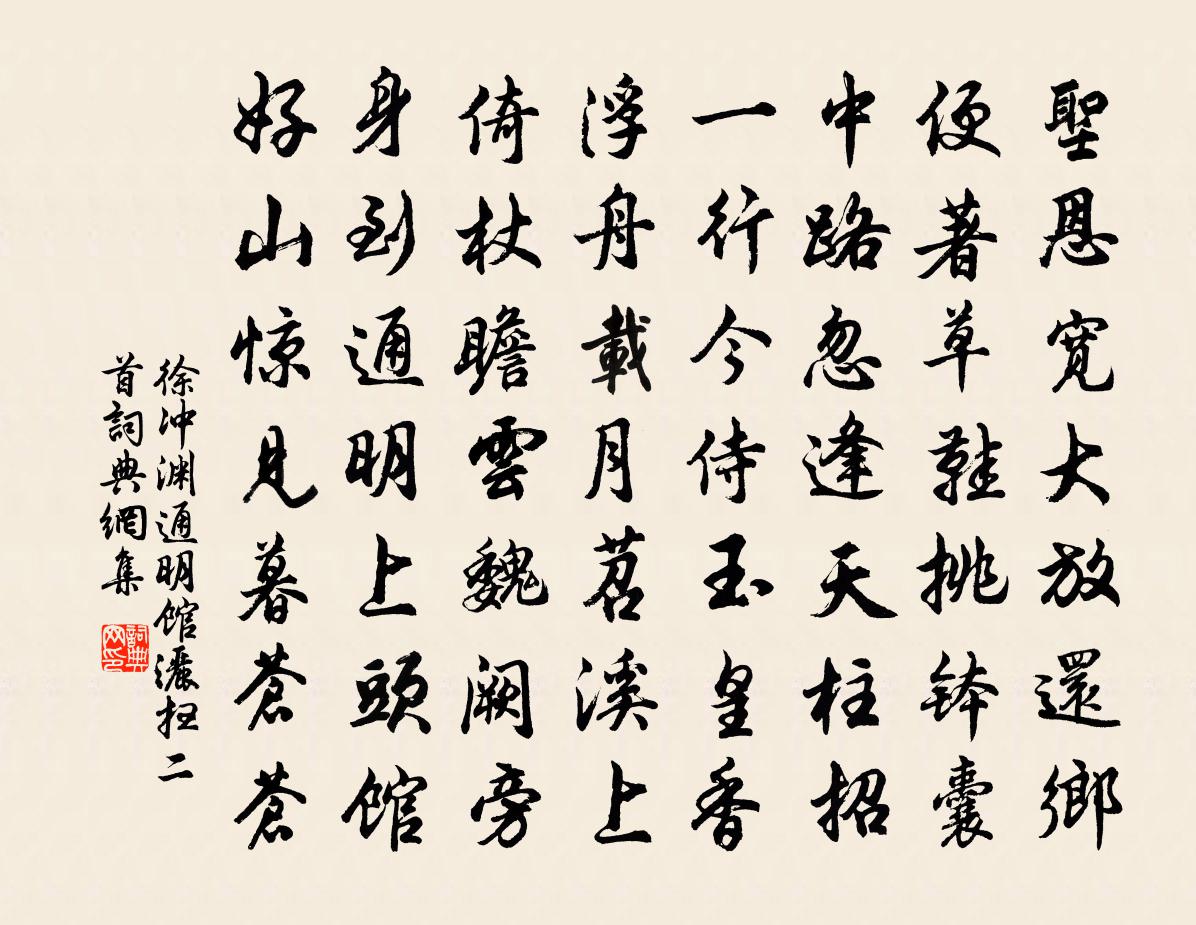 聖恩寛大放還鄉
便著草鞋挑鉢囊
中路忽逢天柱招
一行今侍玉皇香
浮舟載月苕溪上
倚杖瞻雲魏闕旁
身到通明上頭館
好山惊見暮蒼蒼
徐沖渊通明館灑扫二
首詞典網集
詞典网印